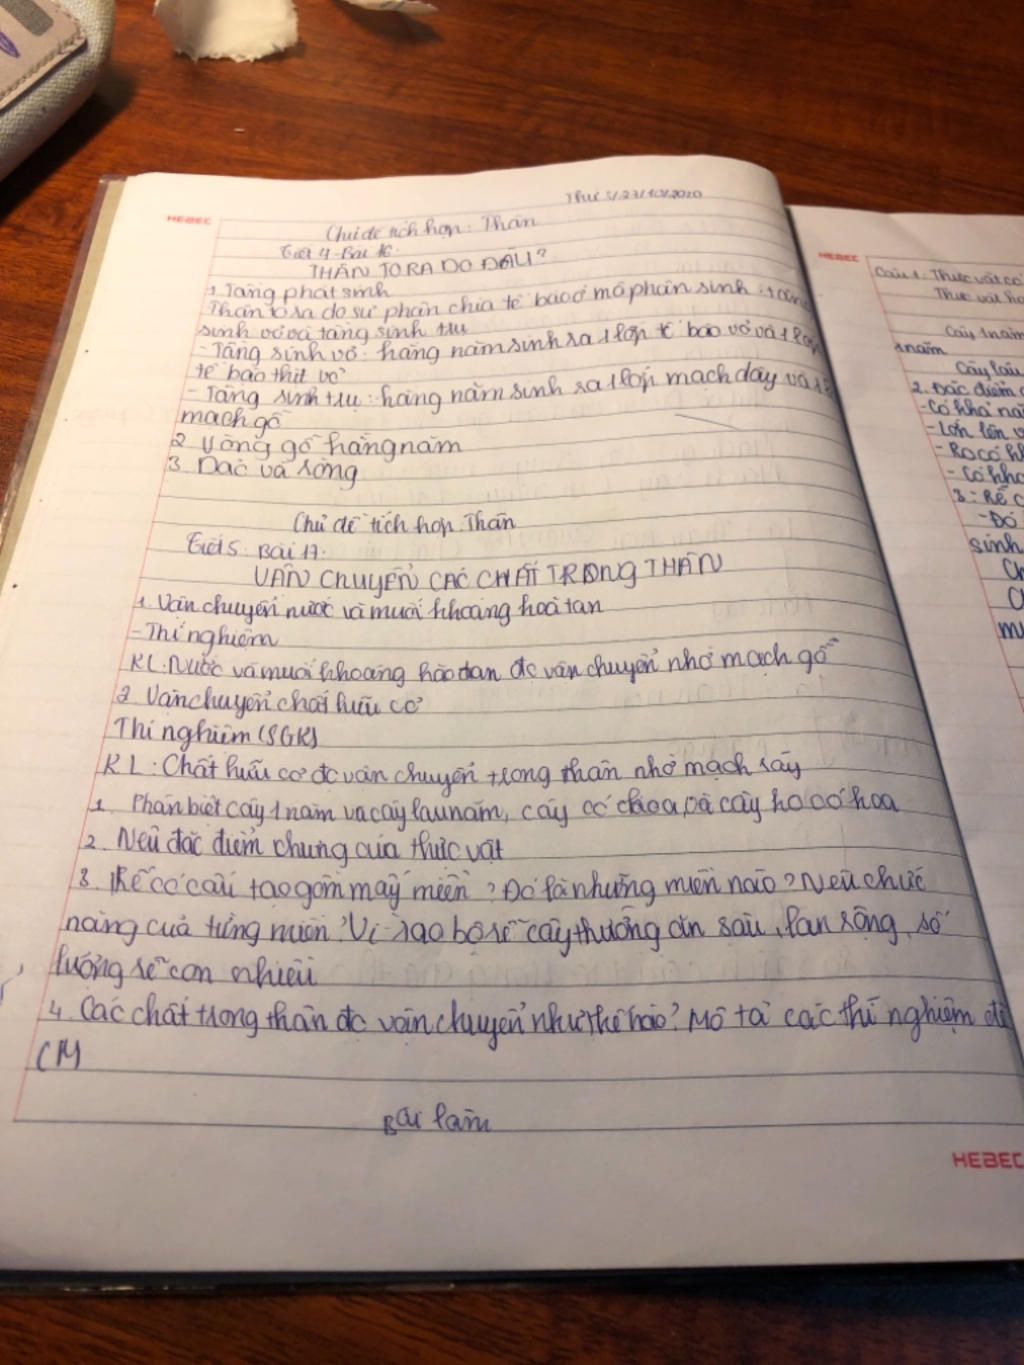 Thứ 3/27/10/2020
HEBEC
Chủ đề tích hợp: Thân
Tiết 4 - Bài 16.
THÂN TO RA DO ĐÂU?
1. Tầng phát sinh
Thân to ra do sự phân chia tế bào ở mô phân sinh: tầng
sinh vỏ và tầng sinh trụ
- Tầng sinh vỏ: hàng năm sinh ra 1 lớp tế bào vỏ và 1 lớp
tế bào thịt vỏ
- Tầng sinh trụ: hàng năm sinh ra 1 lớp mạch dây và 1
mạch gỗ
2 Vòng gỗ hàng năm
3. Dác và ròng
Chủ đề tích hợp: Thân
Tiết 5: Bài 17.
VẬN CHUYỂN CÁC CHẤT TRONG THÂN
1. Vận chuyển nước và muối khoáng hoà tan
- Thí nghiệm
KL: Nước và muối khoáng hòa tan đc vận chuyển nhờ mạch gỗ
2. Vận chuyển chất hữu cơ
Thí nghiệm (SGK)
KL: Chất hữu cơ đc vận chuyển trong thân nhờ mạch rây
1. Phân biệt cây 1 năm và cây lâu năm, cây có hoa và cây ko có hoa
2. Nêu đặc điểm chung của thực vật
3. Rễ có cấu tạo gồm mấy miền? Đó là những miền nào? Nêu chức
năng của từng miền. Vì sao bộ rễ cây thường ăn sâu, lan rộng, số
lượng rễ con nhiều
4. Các chất trong thân đc vận chuyển như thế nào? Mô tả các thí nghiệm để
CM
Bài làm
HEBEC
Câu 1: Thực vật có
Thực vật ko
Cây 1 năm
1 năm
Cây lâu
2. Đặc điểm
- Có khả nă
- Lớn lên
- Ko có kh
- Có kh
3: Rễ c
- Đó
sinh
Ch
C
mi
HEBEC